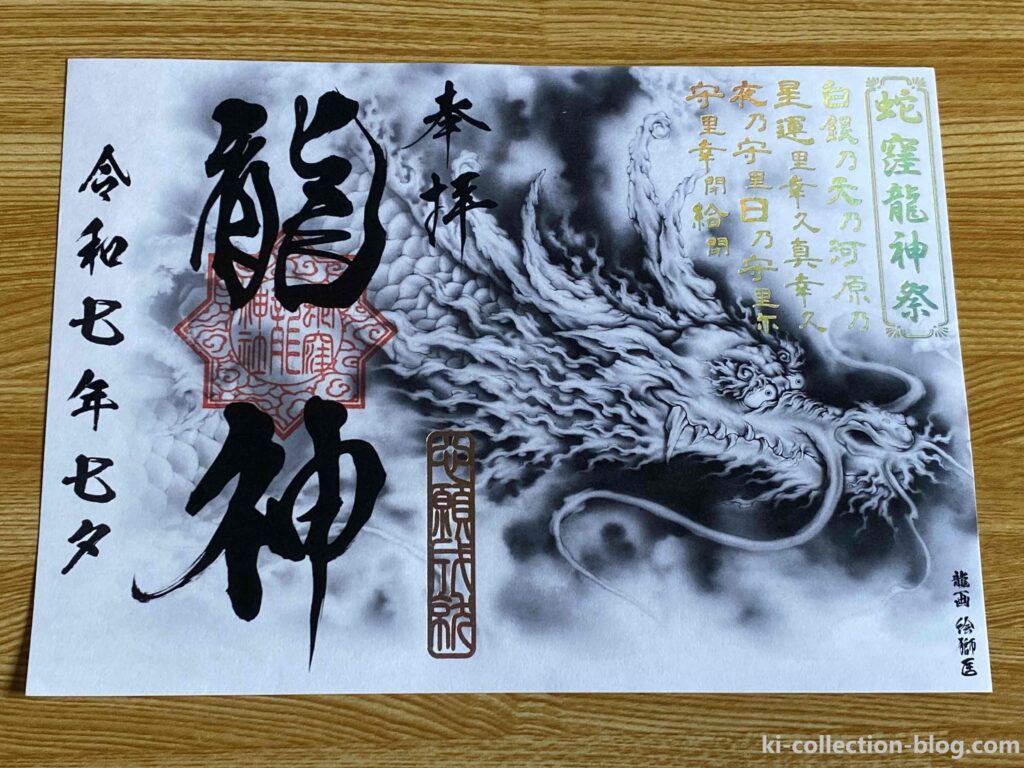 蛇窪龍神祭
白銀乃天乃河原乃
星運里幸久真幸久
夜乃守里日乃守里尓
守里幸閇給閇
奉拝
心願成就
龍神
令和七年七夕
龍画
ki-collection-blog.com